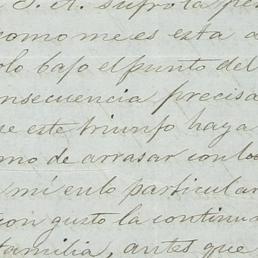 S. A. sufro la pe
como me es esta a
olo bajo el punto del
nsecuencia precisa
ue este triunfo haya
ono de arrasar con lo
mi en lo particular
con gusto la continua
familia, antes que